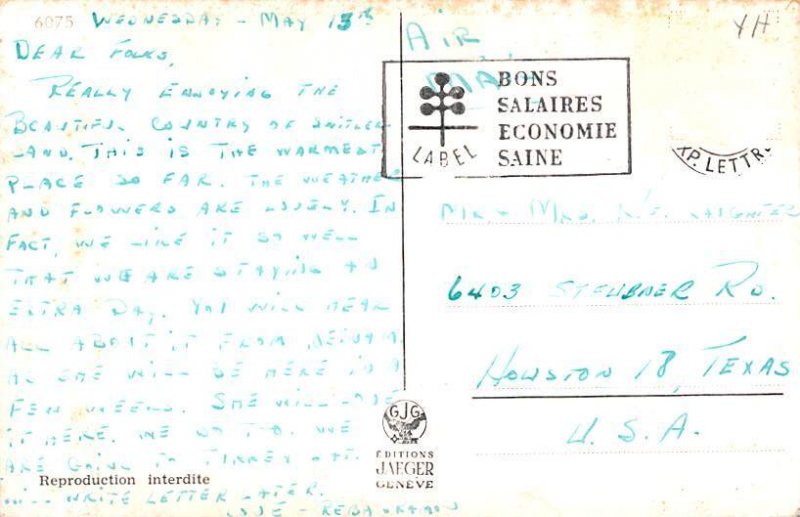 6075 WEDNESDAY - MAY 13th
DEAR FOLKS,
REALLY ENJOYING THE
BEAUTIFUL COUNTRY OF SWITZER-
LAND. THIS IS THE WARMEST
PLACE SO FAR. THE WEATHER
AND FLOWERS ARE LOVELY. IN
FACT, WE LIKE IT SO WELL
THAT WE ARE STAYING AN
EXTRA DAY. YOU WILL HEAR
ALL ABOUT IT FROM
AS SHE WILL BE HERE IN A
FEW WEEKS. SHE WILL LOVE
IT HERE. WE DO TOO. WE
ARE GOING TO
WILL WRITE LETTER LATER.
LOVE -
Reproduction interdite
AIR
MAIL
YH
LABEL
BONS
SALAIRES
ECONOMIE
SAINE
XP. LETTR.
MR + MRS.
6403 STEUBNER RD.
HOUSTON 18, TEXAS
U. S. A.
GJG
ÉDITIONS
JAEGER
GENÈVE